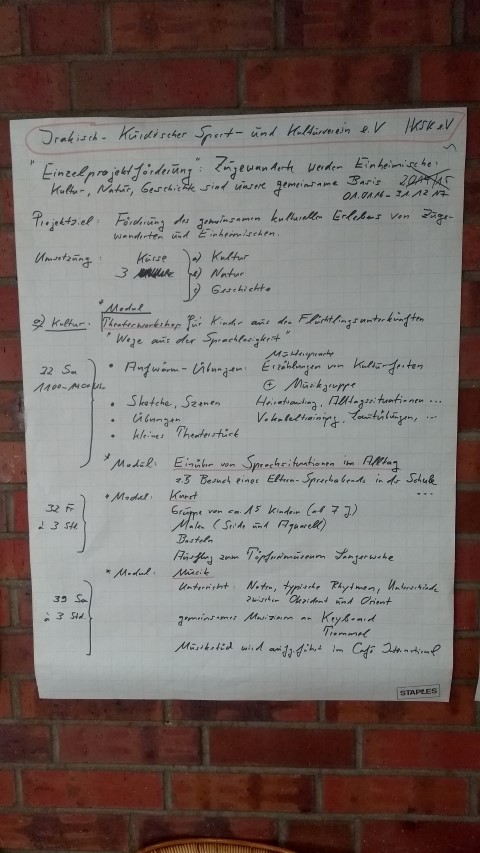 Irakisch-Kurdischer Sport- und Kulturverein e.V IKSK eV
"Einzelprojektförderung": Zugewanderte werden Einheimische:
Kultur-, Natur, Geschichte sind unsere gemeinsame Basis 2014/15
01.01.16 - 31.12.17
Projektziel: Förderung des gemeinsamen kulturellen Erlebens von Zuge-
wanderten und Einheimischen.
Umsetzung: 3 Kurse
a) Kultur
b) Natur
c) Geschichte
a) Kultur: * Modul
Theaterworkshop für Kinder aus den Flüchtlingsunterkünften
"Wege aus der Sprachlosigkeit"
Muttersprache
32 Sa
• Aufwärm-Übungen: Erzählungen von Kulturfesten
⊕ Musikgruppe
• Sketche, Szenen Heiratsantrag, Alltagssituationen...
• Übungen Vokaltraining, Lautübungen, ...
• kleines Theaterstück
* Modul: Einüben von Sprachsituationen im Alltag
zB Besuch eines Eltern-Sprechabends in der Schule ...
32 Fr
à 3 Std.
* Modul: Kunst
Gruppe von ca. 15 Kindern (ab 7 J)
Malen (Seide und Aquarell)
Basteln
Ausflug zum Töpfereimuseum Langerwehe
* Modul: Musik
39 Sa
à 3 Std.
Unterricht: Noten, typische Rhytmen, Unterschiede
zwischen Okzident und Orient
gemeinsames Musizieren an Keyboard
Trommel
Musikstück wird aufgeführt im Café International
STAPLES